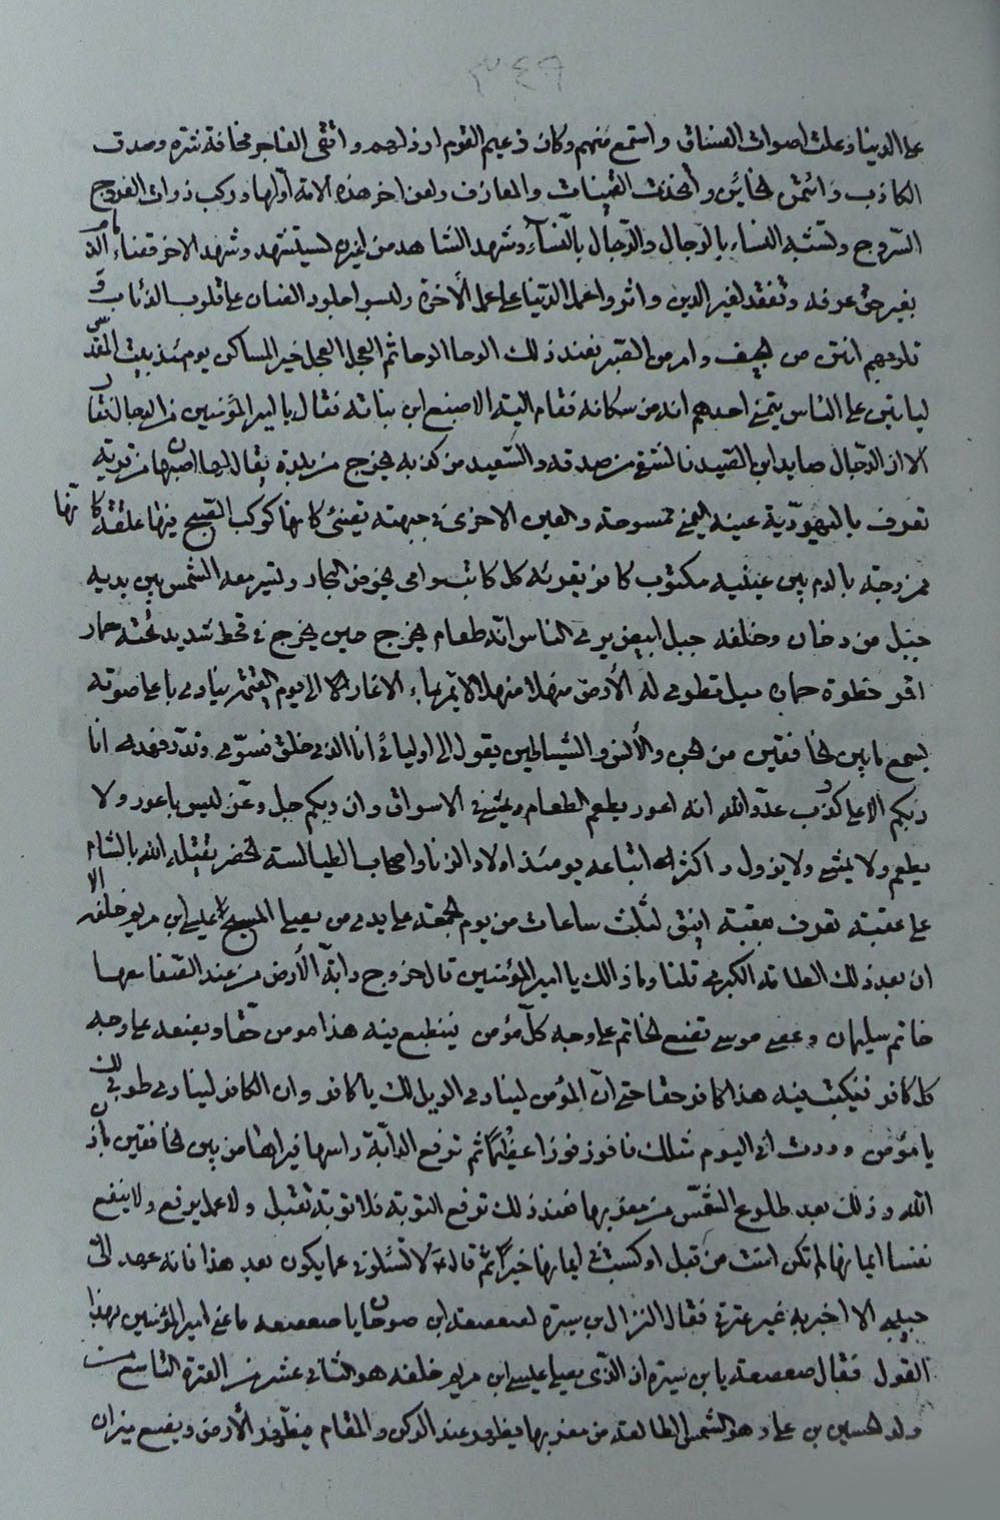 ٣٤٩
على الدنيا وعلت اصوات الفساق واستمع منهم وكان زعيم القوم ارذلهم واتقى الفاجر مخافة شره وصدق
الكاذب وائتمن الخاين واتخذت القينات والمعازف ولعن اخر هذه الامة اولها وركب ذوات الفروج
السروج وتشبه النساء بالرجال والرجال بالنساء وشهد الشاهد من غير ان يستشهد وشهد الاخر قضاء لذمام
بغير حق عرفه وتفقه لغير الدين واثروا عمل الدنيا على عمل الآخرة ولبسوا جلود الضان على قلوب الذئاب و
قلوبهم انتن من الجيف وامر من الصبر فعند ذلك الوحا الوحا ثم العجل العجل خير المساكن يومئذ بيت المقدس
لياتين على الناس يتمنى احدهم انه من سكانه فقام اليه الاصبغ ابن نباته فقال يا امير المؤمنين من الدجال فقال
الا ان الدجال صايد ابن الصيد فالشقي من صدقه والسعيد من كذبه يخرج من بلدة يقال لها اصبهان من قرية
تعرف باليهودية عينه اليمنى ممسوحة والعين الاخرى في جبهته تضئ كانها كوكب الصبح فيها علقة كانها
ممزوجة بالدم بين عينيه مكتوب كافر يقرئه كل كاتب وامي يخوض البحار وتسير معه الشمس بين يديه
جبل من دخان وخلفه جبل ابيض يرى الناس انه طعام يخرج حين يخرج في قحط شديد تحته حمار
اقمر خطوة حماره ميل تطوى له الأرض منهلا منهلا لا يمر بماء الا غار الى يوم القيمة ينادي باعلا صوته
يسمع ما بين الخافقين من الجن والأنس والشياطين يقول الى اوليائي انا الذي خلق فسوى وقدر فهدى انا
ربكم الاعلى كذب عدو الله انه اعور يطعم الطعام ويمشي في الاسواق وان ربكم جل وعز ليس باعور ولا
يطعم ولا يمشي ولا يزول واكثر اتباعه يومئذ اولاد الزنا واصحاب الطيالسة الخضر يقتله الله بالشام
على عقبة تعرف بعقبة افيق لثلث ساعات من يوم الجمعة على يدي من يصلي المسيح عيسى ابن مريم خلفه الا
ان بعد ذلك الطامة الكبرى قلنا وما ذلك يا امير المؤمنين قال خروج دابة الأرض من عند الصفا معها
خاتم سليمان وعصى موسى تضع الخاتم على وجه كل مؤمن فينطبع فيه هذا مومن حقا ويضعه على وجه
كل كافر فتكتب فيه هذا كافر حقا حتى ان المؤمن لينادي الويل لك يا كافر وان الكافر لينادي طوبى لك
يا مؤمن وددت اني اليوم مثلك فافوز فوزا عظيما ثم ترفع الدابة راسها فيراها من بين الخافقين باذن
الله وذلك بعد طلوع الشمس من مغربها فعند ذلك ترفع التوبة فلا توبة تقبل ولا عمل يرفع ولا ينفع
نفسا ايمانها لم تكن امنت من قبل او كسبت في ايمانها خيرا ثم قال لا تسئلوني عما يكون بعد هذا فانه عهد الي
حبيبي الا اخبر به غير عترتي فقال النزال بن سبرة لصعصعة ابن صوحان يا صعصعه ما عنى امير المؤمنين بهذا
القول فقال صعصعة يا بن سبرة ان الذي يصلي عيسى ابن مريم خلفه هو الثاني عشر من العترة التاسع من
ولد الحسين بن علي وهو الشمس الطالعة من مغربها يظهر عند الركن والمقام فيطهر الأرض ويضع ميزان